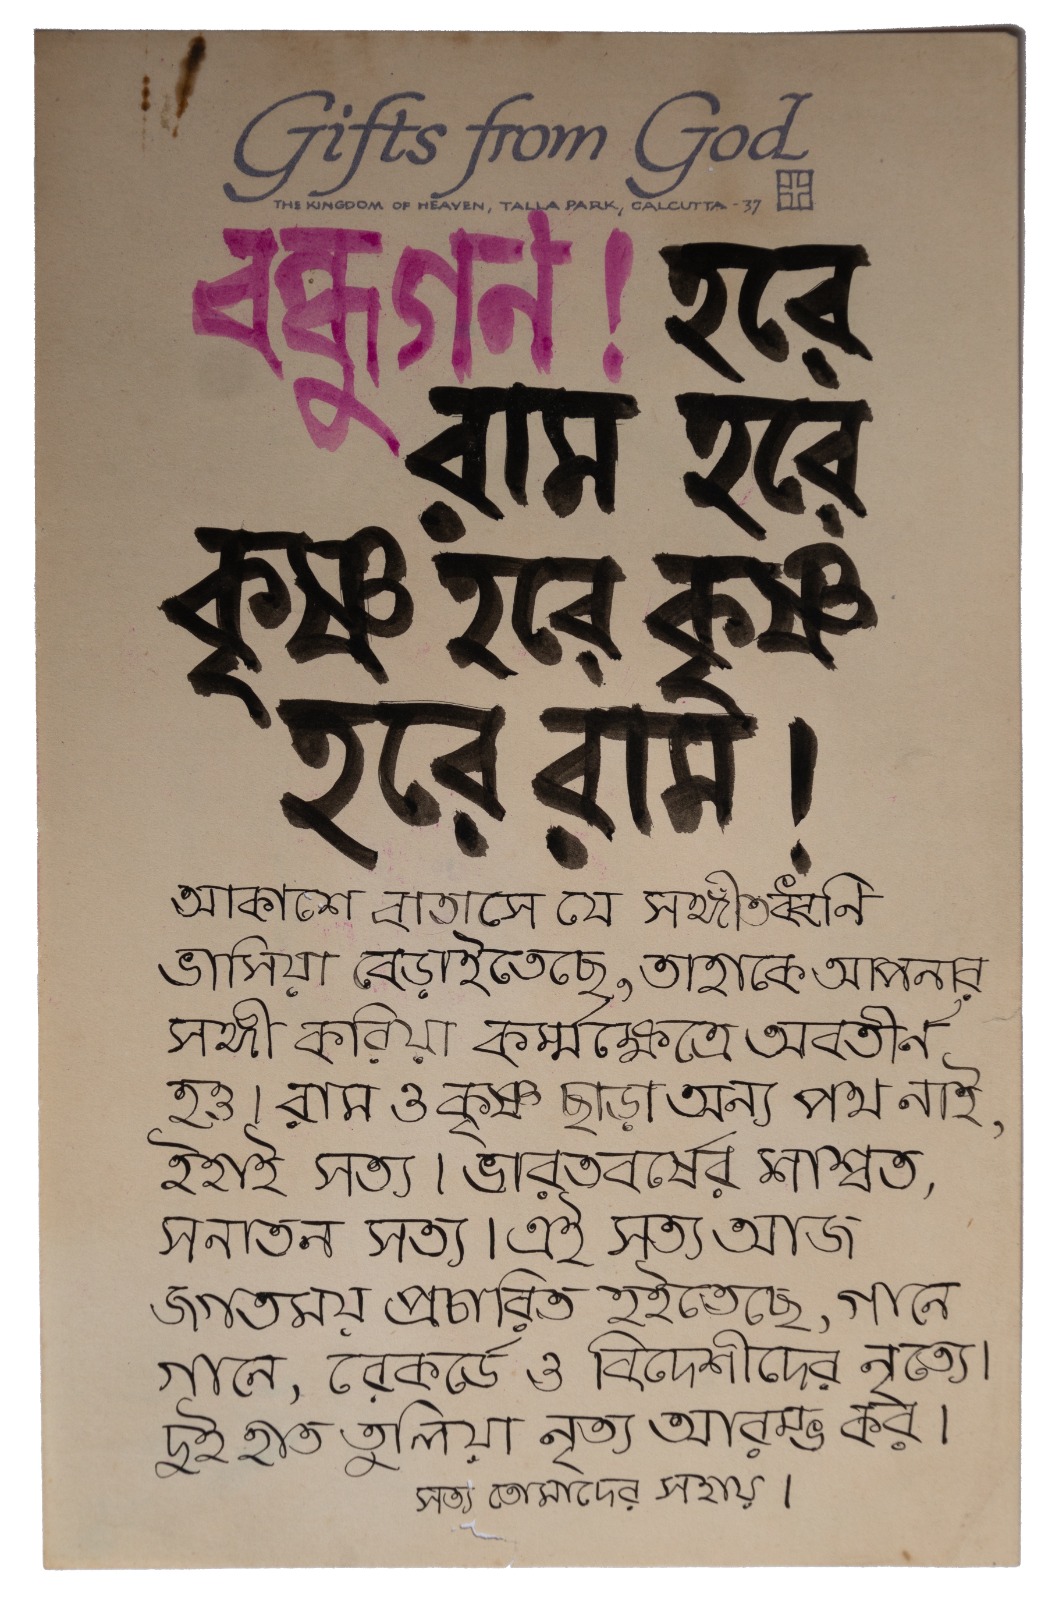 Gifts from God
THE KINGDOM OF HEAVEN, TALLA PARK, CALCUTTA - 37
বন্ধুগন! হরে
রাম হরে
কৃষ্ণ হরে কৃষ্ণ
হরে রাম!
আকাশে বাতাসে যে সঙ্গীতধ্বনি
ভাসিয়া বেড়াইতেছে, তাহাকে আপনার
সঙ্গী করিয়া কর্ম্মক্ষেত্রে অবতীর্ন
হও। রাম ও কৃষ্ণ ছাড়া অন্য পথ নাই,
ইহাই সত্য। ভারতবর্ষের শাশ্বত,
সনাতন সত্য। এই সত্য আজ
জগতময় প্রচারিত হইতেছে, গানে
গানে, রেকর্ডে ও বিদেশীদের নৃত্যে।
দুই হাত তুলিয়া নৃত্য আরম্ভ কর।
সত্য তোমাদের সহায়।